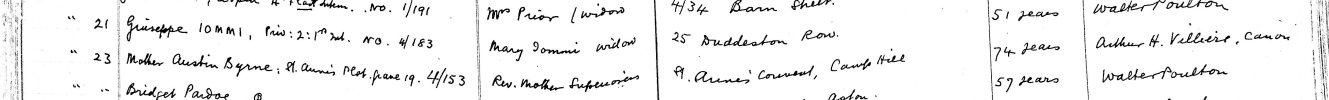 No. 1/191 Mrs Prior / widow 4/34 Barn Street. 51 years Walter Poulton
" 21 Giuseppe IOMMI, Priv: 2: 1st Int. No. 4/183 Mary Iommi widow 25 Duddeston Row. 74 years Arthur H. Villiers, Canon
" 23 Mother Austin Byrne: St. Anne's Plot. grave 19. 4/153 Rev. Mother Superioress St. Anne's Convent, Camp Hill 57 years Walter Poulton
" " Bridget Pardoe Aston.